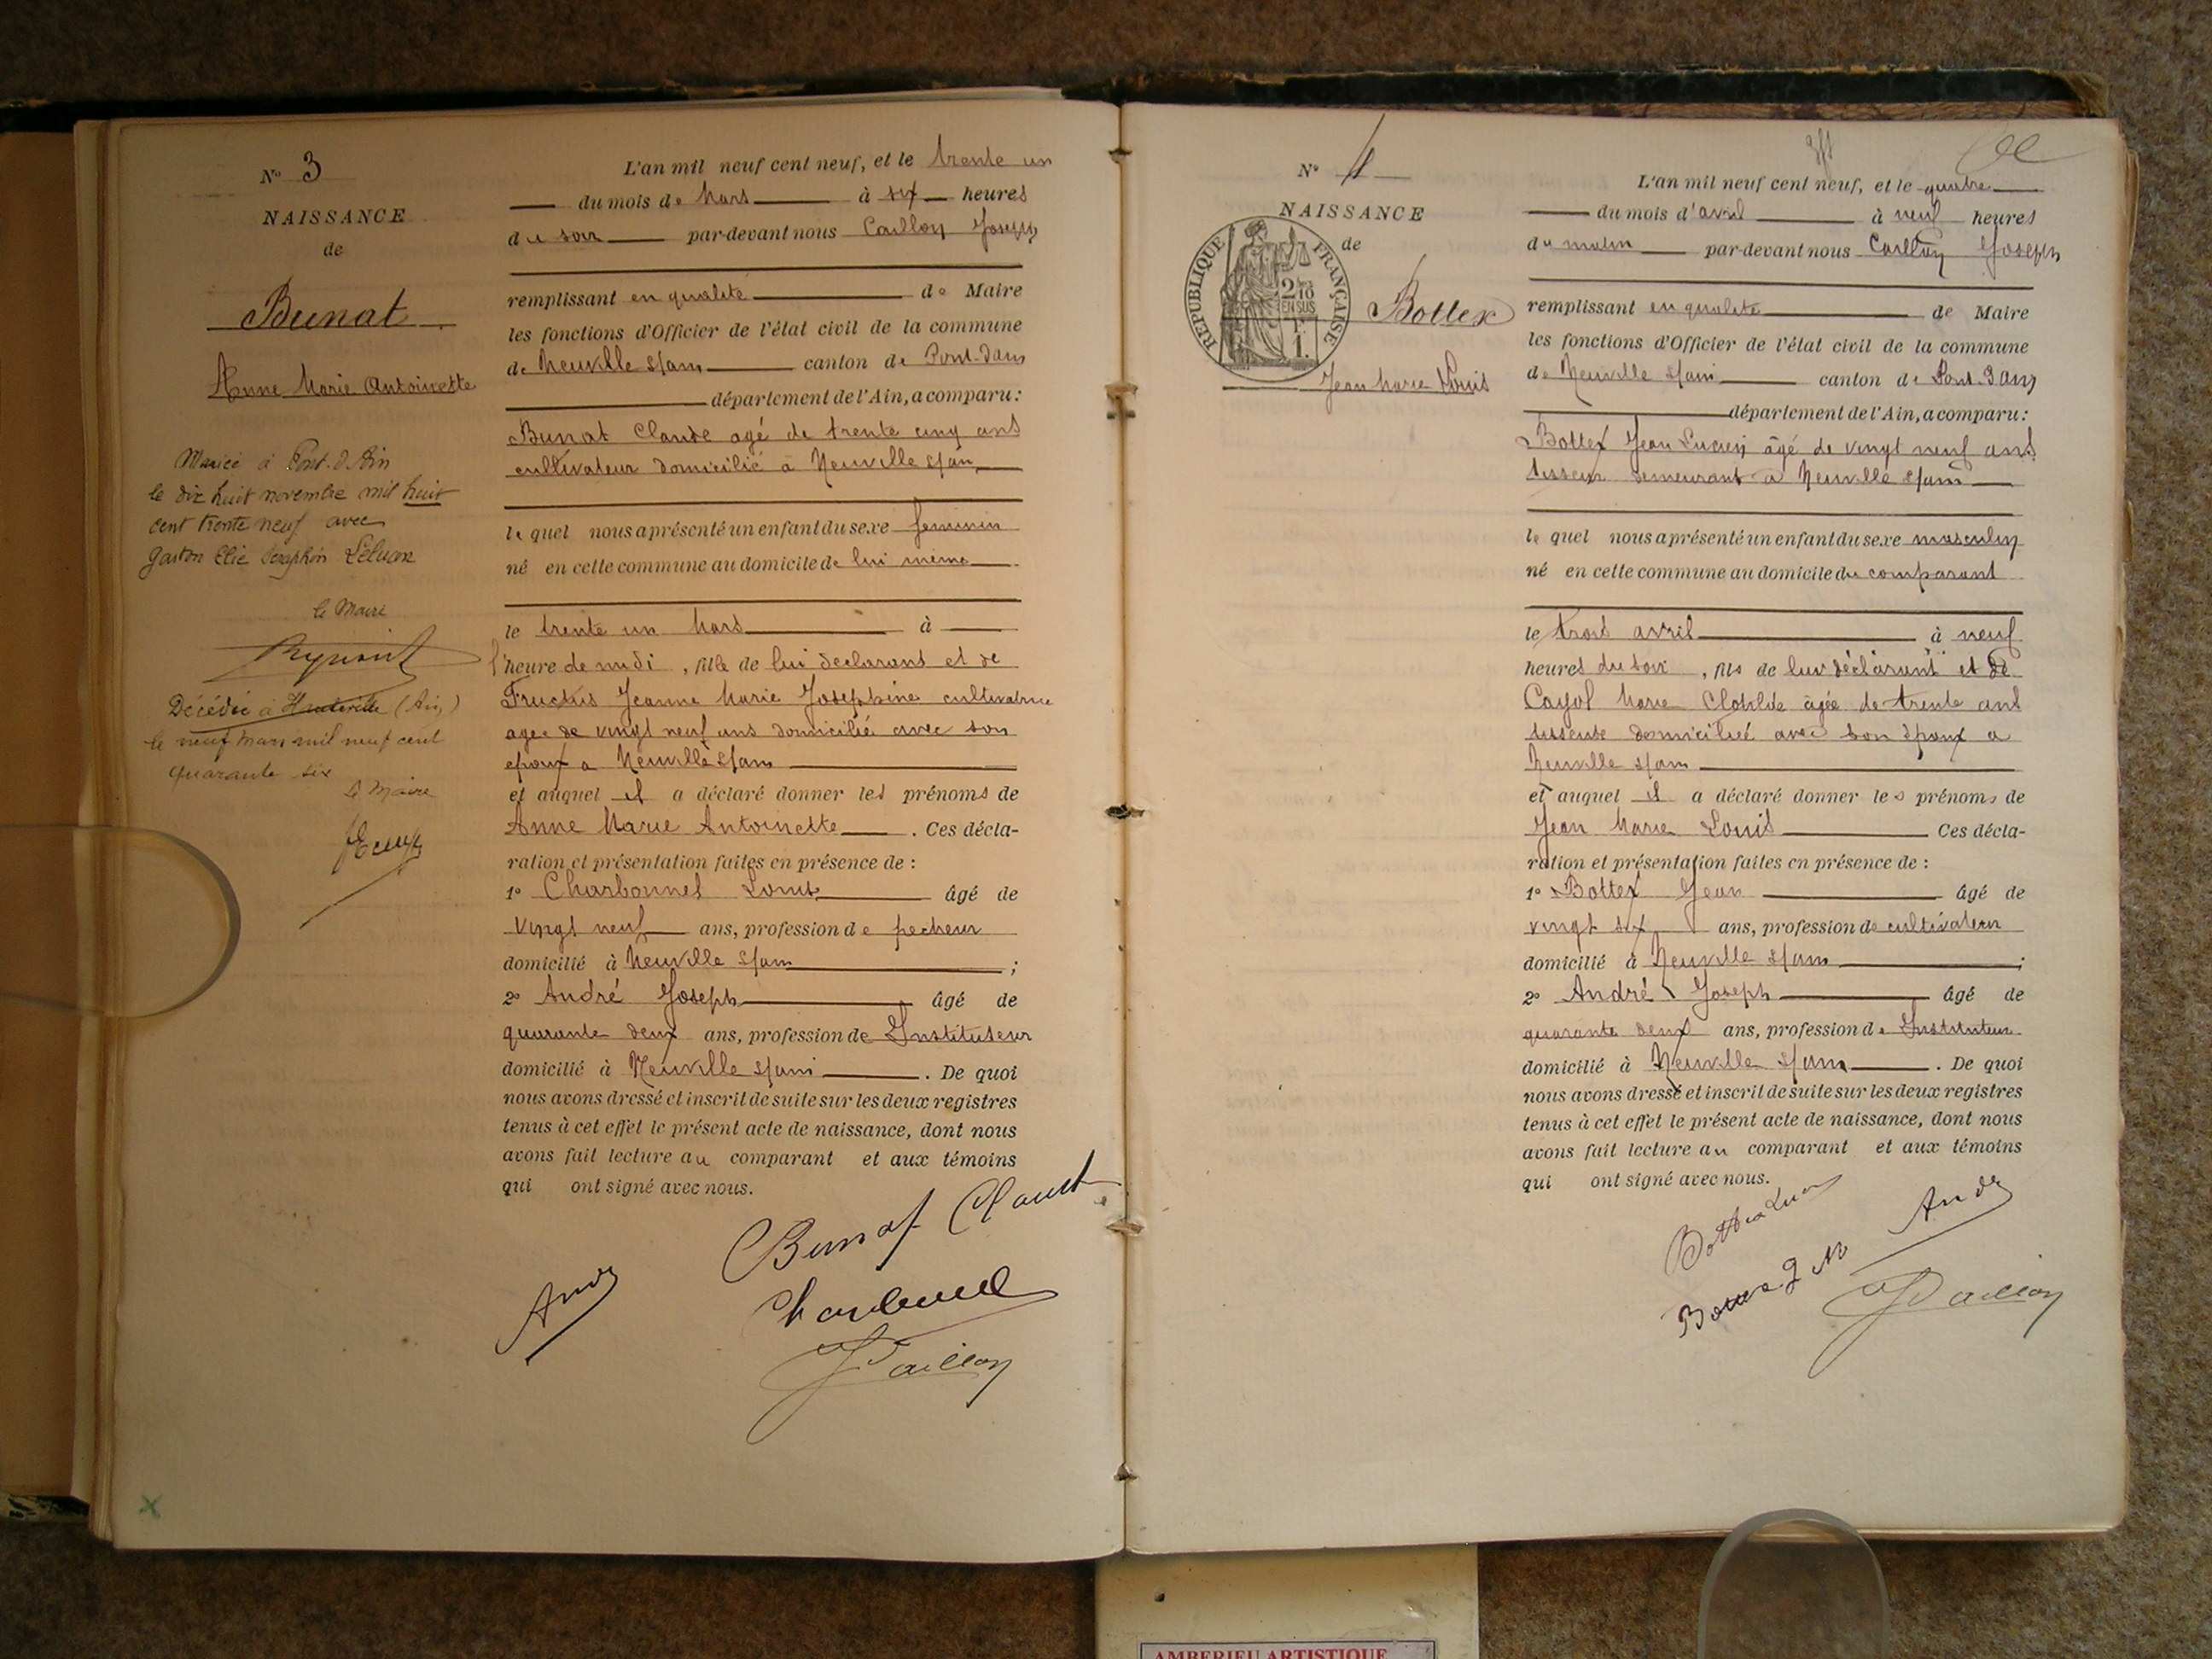 N° 3
NAISSANCE
de
Bunat
Anne Marie Antoinette
Mariée à Pont-d'Ain
le dix huit novembre mil huit
cent trente neuf avec
Gaston Elie Seraphin
le Maire
Décédée à Hauteville (Ain)
le neuf mars mil neuf cent
quarante six
le Maire
L'an mil neuf cent neuf, et le trente un
du mois de Mars à six heures
du soir par-devant nous Caillon Joseph
remplissant en qualité de Maire
les fonctions d'Officier de l'état civil de la commune
de Neuville s/ain canton de Pont-d'ain
département de l'Ain, a comparu :
Bunat Claude agé de trente cinq ans
cultivateur domicilié à Neuville s/ain
le quel nous a présenté un enfant du sexe feminin
né en cette commune au domicile de lui même
le trente un Mars à
l'heure de midi, fille de lui declarant et de
Jeanne Marie Josephine cultivatrice
agee de vingt neuf ans domicilié avec son
epoux a Neuville s/ain
et auquel il a déclaré donner les prénoms de
Anne Marie Antoinette. Ces décla-
ration et présentation faites en présence de :
1° Charbonnel Louis âgé de
vingt neuf ans, profession de pecheur
domicilié à Neuville s/ain ;
2° André Joseph âgé de
quarante deux ans, profession de Instituteur
domicilié à Neuville s/ain. De quoi
nous avons dressé et inscrit de suite sur les deux registres
tenus à cet effet le présent acte de naissance, dont nous
avons fait lecture au comparant et aux témoins
qui ont signé avec nous.
Bunat Claude
André
Charbonnel
J Caillon
N° 4
NAISSANCE
de
RÉPUBLIQUE FRANÇAISE
2/10
EN SUS
1 F.
Bottex
Jean Marie Louis
L'an mil neuf cent neuf, et le quatre
du mois d'avril à neuf heures
du matin par-devant nous Caillon Joseph
remplissant en qualite de Maire
les fonctions d'Officier de l'état civil de la commune
de Neuville s/ain canton de Pont-d'ain
département de l'Ain, a comparu :
Bottex Jean Lucien âgé de vingt neuf ans
tisseur demeurant a Neuville s/ain
le quel nous a présenté un enfant du sexe masculin
né en cette commune au domicile du comparant
le trois avril à neuf
heures du soir, fils de lui déclarant et de
Cayol Marie Clotilde âgée de trente ans
tisseuse domiciliée avec son époux a
Neuville s/ain
et auquel il a déclaré donner les prénoms de
Jean Marie Louis Ces décla-
ration et présentation faites en présence de :
1° Bottex Jean âgé de
vingt six ans, profession de cultivateur
domicilié à Neuville s/ain ;
2° André Joseph âgé de
quarante deux ans, profession de Instituteur
domicilié à Neuville s/ain. De quoi
nous avons dressé et inscrit de suite sur les deux registres
tenus à cet effet le présent acte de naissance, dont nous
avons fait lecture au comparant et aux témoins
qui ont signé avec nous.
André
J Caillon
AMBERIEU ARTISTIQUE